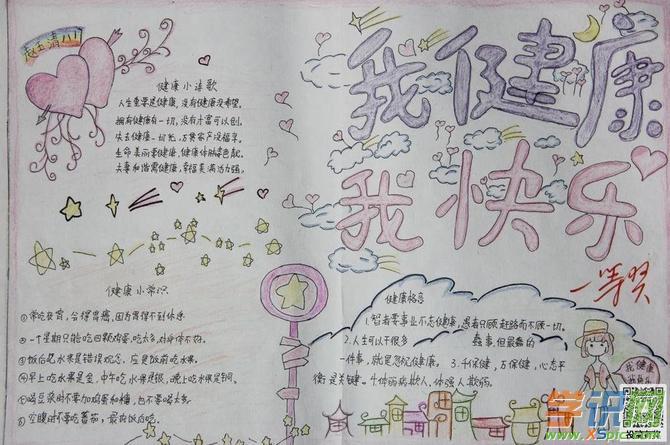 我健康
我快乐
一等奖
健康小诗歌
人生重要是健康，没有健康没希望。
拥有健康有一切，没有才富可以创。
失去健康一切光，万贯家产没福享。
生命美丽要健康，健康体魄
夫妻和谐需健康，幸福美满活力强。
健康小常识
①常吃夜宵，会得胃癌，因为胃得不到休息
②一个星期只能吃四颗鸡蛋，吃太多，对身体不好。
③饭后吃水果是错误观念，应是饭前吃水果。
④早上吃水果是金，中午吃水果是银，晚上吃水果是铜。
⑤喝豆浆时不要加鸡蛋和糖，也不要喝太多。
⑥空腹时不要吃蕃茄，最好饭后吃。
健康格言
1.智者要事业不忘健康，愚者只顾赶路而不顾一切。
2.人生可以干很多蠢事，但最蠢的
一件事，就是忽视健康。3.千保健，万保健，心态平
衡是关键。4.体弱病欺人，体强人欺病。
我健康
我快乐
学识网
www.xspic.com